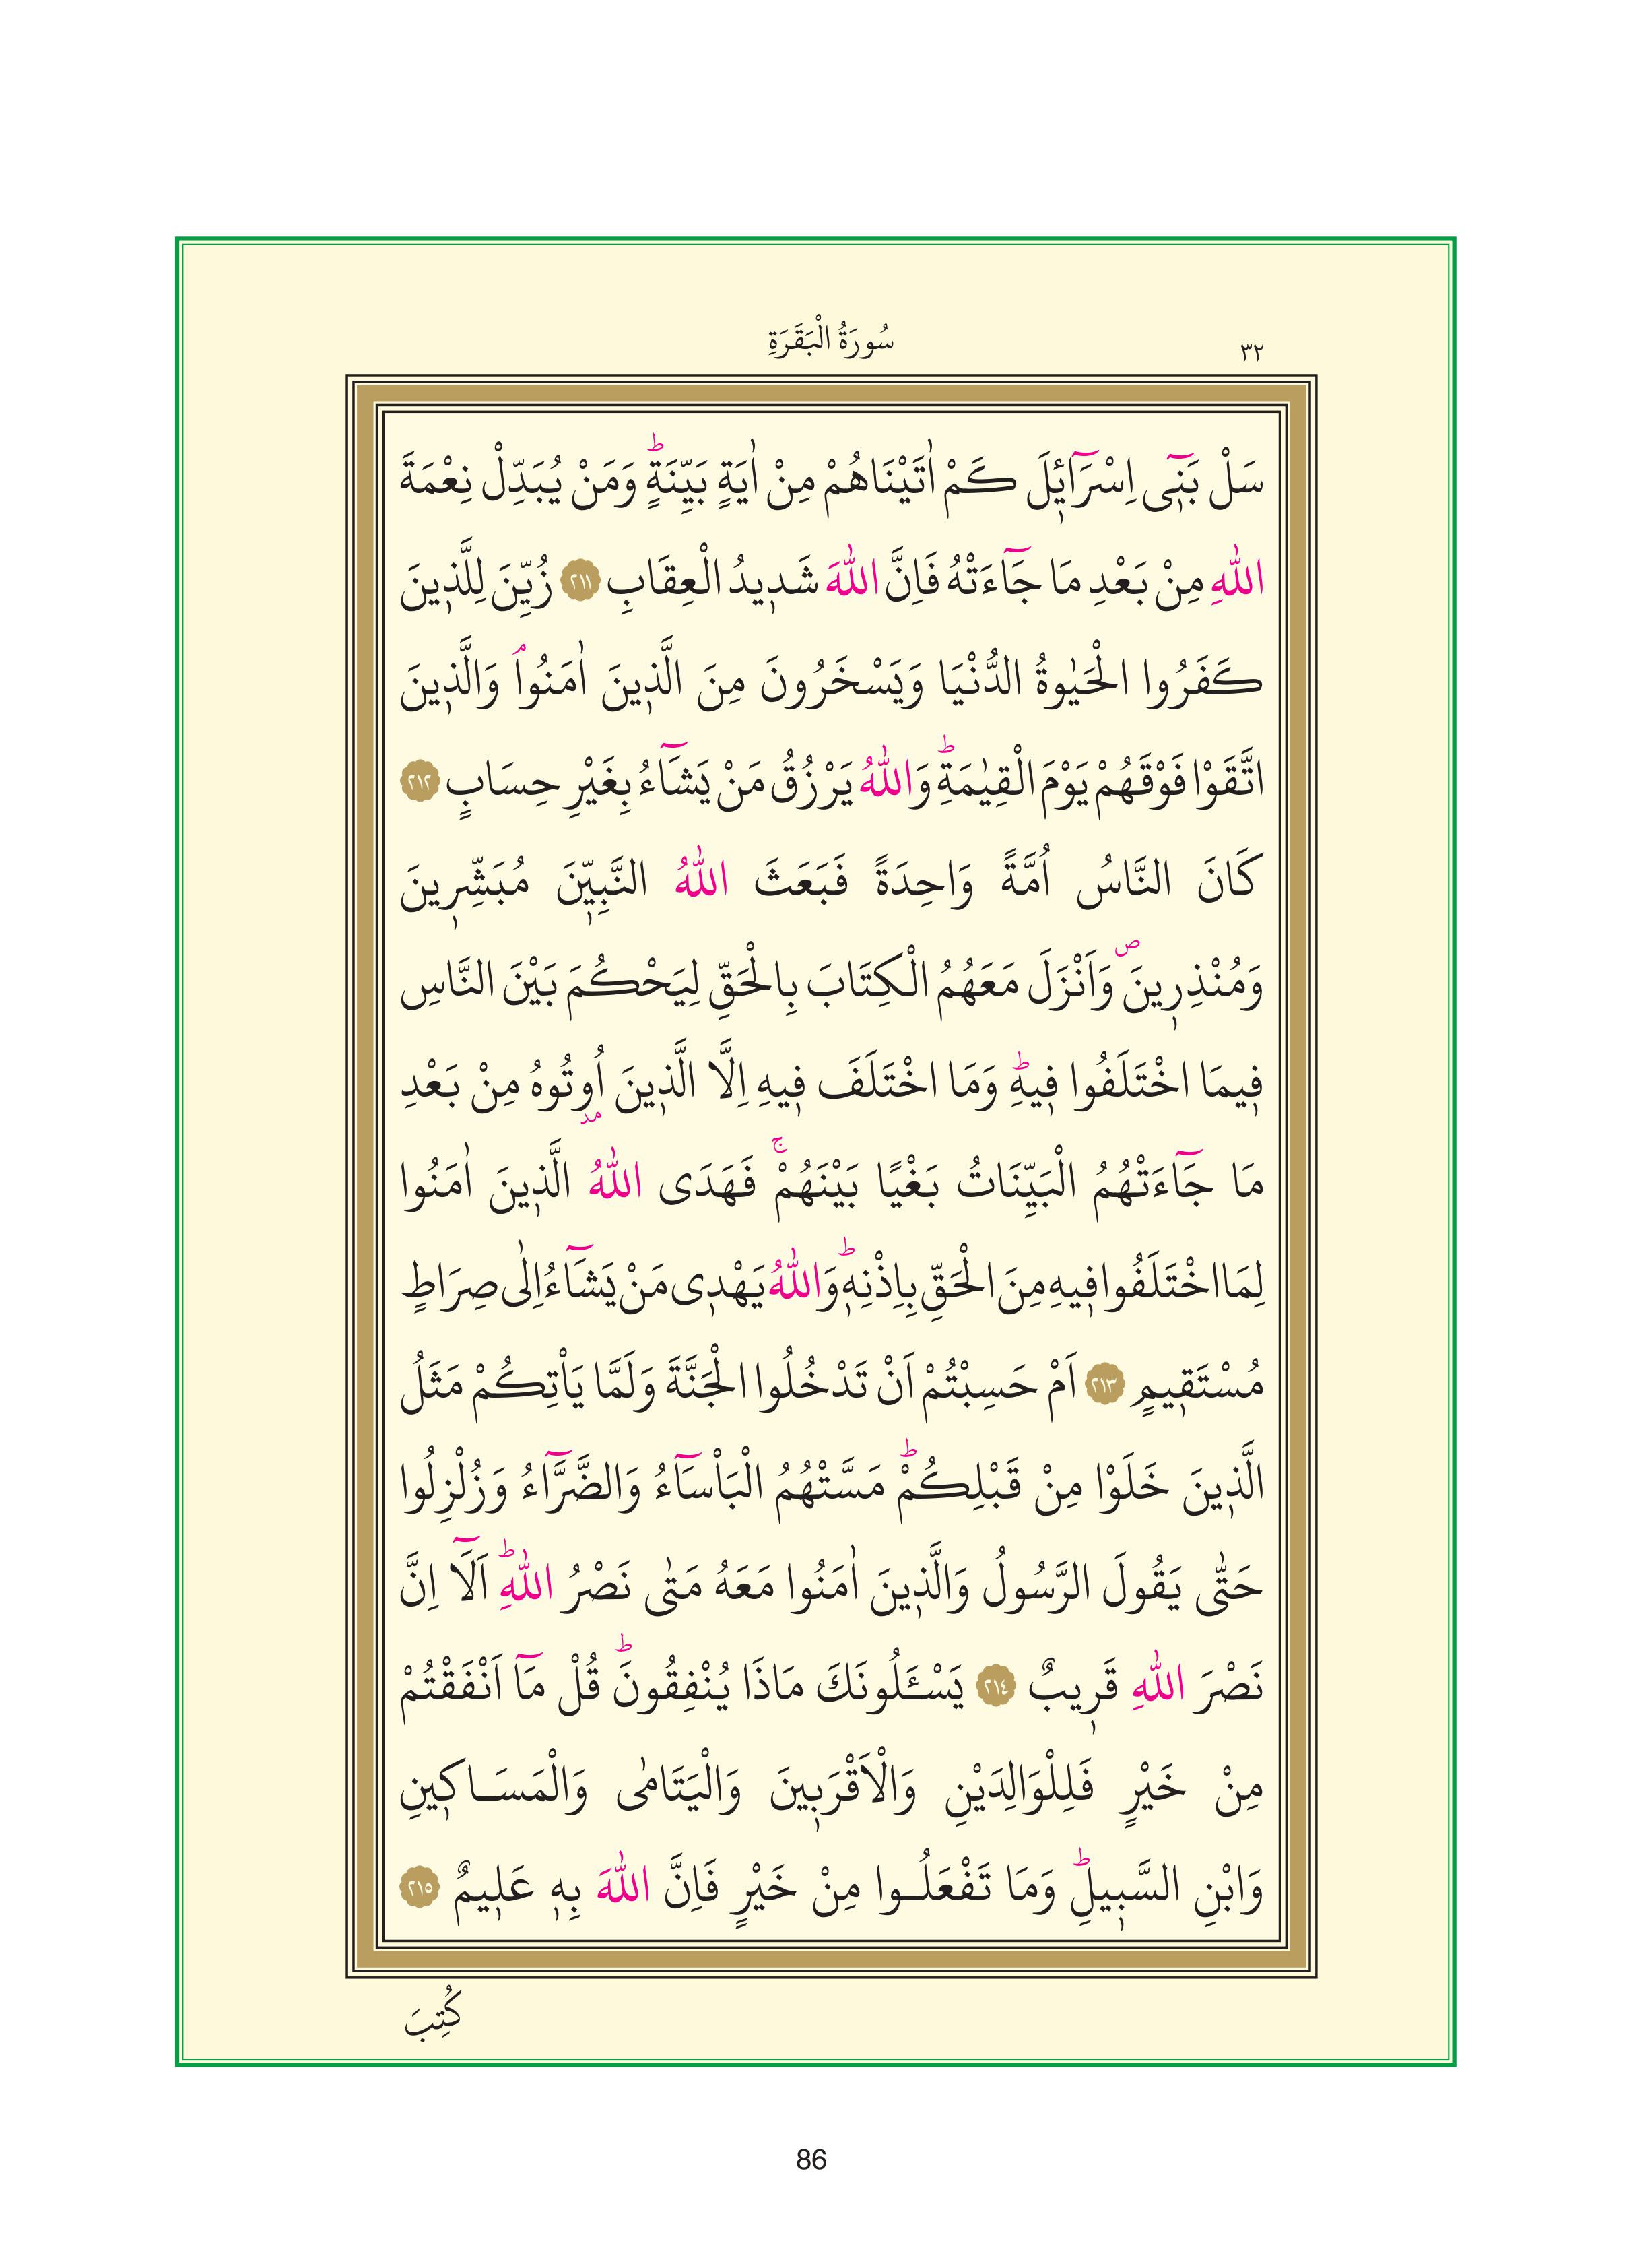 ٣٢
سُورَةُ الْبَقَرَةِ
سَلْ بَنٖٓى اِسْرَٓائٖلَ كَمْ اٰتَيْنَاهُمْ مِنْ اٰيَةٍ بَيِّنَةٍؕ وَمَنْ يُبَدِّلْ نِعْمَةَ
اللّٰهِ مِنْ بَعْدِ مَا جَٓاءَتْهُ فَاِنَّ اللّٰهَ شَدٖيدُ الْعِقَابِ ٢١١ زُيِّنَ لِلَّذٖينَ
كَفَرُوا الْحَيٰوةُ الدُّنْيَا وَيَسْخَرُونَ مِنَ الَّذٖينَ اٰمَنُواۢ وَالَّذٖينَ
اتَّقَوْا فَوْقَهُمْ يَوْمَ الْقِيٰمَةِؕ وَاللّٰهُ يَرْزُقُ مَنْ يَشَٓاءُ بِغَيْرِ حِسَابٍ ٢١٢
كَانَ النَّاسُ اُمَّةً وَاحِدَةً فَبَعَثَ اللّٰهُ النَّبِيّٖنَ مُبَشِّرٖينَ
وَمُنْذِرٖينَࣕ وَاَنْزَلَ مَعَهُمُ الْكِتَابَ بِالْحَقِّ لِيَحْكُمَ بَيْنَ النَّاسِ
فٖيمَا اخْتَلَفُوا فٖيهِؕ وَمَا اخْتَلَفَ فٖيهِ اِلَّا الَّذٖينَ اُو۫تُوهُ مِنْ بَعْدِ
مَا جَٓاءَتْهُمُ الْبَيِّنَاتُ بَغْيًا بَيْنَهُمْۚ فَهَدَى اللّٰهُ الَّذٖينَ اٰمَنُوا
لِمَا اخْتَلَفُوا فٖيهِ مِنَ الْحَقِّ بِاِذْنِهٖؕ وَاللّٰهُ يَهْدٖى مَنْ يَشَٓاءُ اِلٰى صِرَاطٍ
مُسْتَقٖيمٍ ٢١٣ اَمْ حَسِبْتُمْ اَنْ تَدْخُلُوا الْجَنَّةَ وَلَمَّا يَاْتِكُمْ مَثَلُ
الَّذٖينَ خَلَوْا مِنْ قَبْلِكُمْؕ مَسَّتْهُمُ الْبَاْسَٓاءُ وَالضَّرَّٓاءُ وَزُلْزِلُوا
حَتّٰى يَقُولَ الرَّسُولُ وَالَّذٖينَ اٰمَنُوا مَعَهُ مَتٰى نَصْرُ اللّٰهِؕ اَلَٓا اِنَّ
نَصْرَ اللّٰهِ قَرٖيبٌ ٢١٤ يَسْـَٔلُونَكَ مَاذَا يُنْفِقُونَؕ قُلْ مَٓا اَنْفَقْتُمْ
مِنْ خَيْرٍ فَلِلْوَالِدَيْنِ وَالْاَقْرَبٖينَ وَالْيَتَامٰى وَالْمَسَاكٖينِ
وَابْنِ السَّبٖيلِؕ وَمَا تَفْعَلُوا مِنْ خَيْرٍ فَاِنَّ اللّٰهَ بِهٖ عَلٖيمٌ ٢١٥
كُتِبَ
86